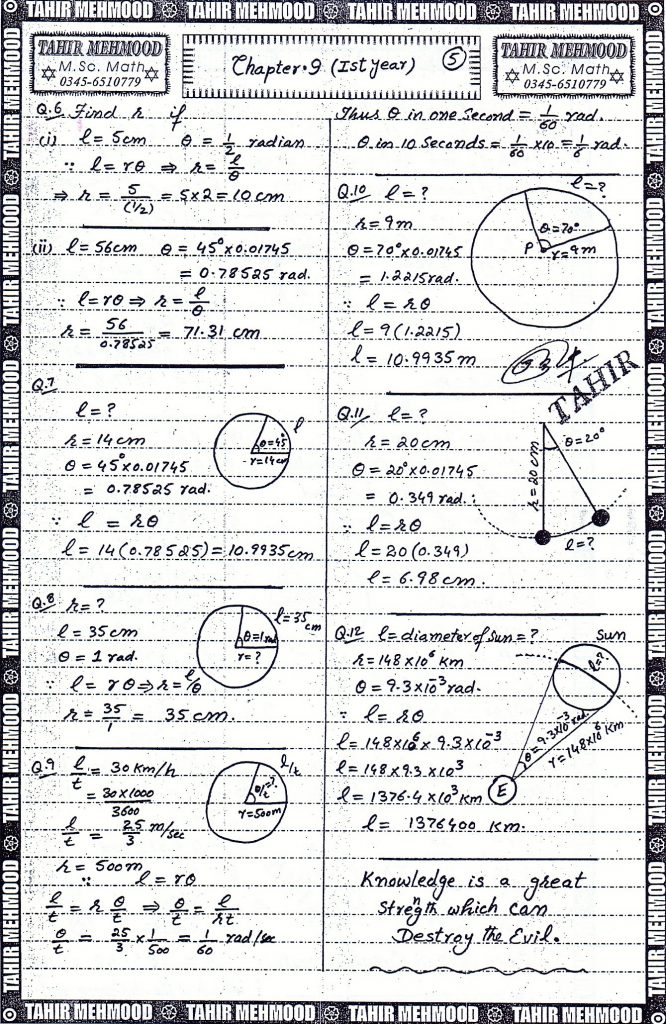 TAHIR MEHMOOD TAHIR MEHMOOD TAHIR MEHMOOD TAHIR MEHMOOD
TAHIR MEHMOOD
M.Sc. Math
0345-6510779
Chapter.9 (Ist year)
5
TAHIR MEHMOOD
M.Sc. Math
0345-6510779
Q.6 Find r if
(i) l = 5cm θ = 1/2 radian
∵ l = rθ ⇒ r = l/θ
⇒ r = 5/(1/2) = 5x2 = 10 cm
(ii) l = 56cm θ = 45°x0.01745
= 0.78525 rad.
∵ l = rθ ⇒ r = l/θ
r = 56/0.78525 = 71.31 cm
Q.7
l = ?
r = 14cm
θ = 45°x0.01745
= 0.78525 rad.
∵ l = rθ
l = 14(0.78525) = 10.9935cm
l
θ=45°
r=14cm
Q.8 r = ?
l = 35cm
θ = 1 rad.
∵ l = rθ ⇒ r = l/θ
r = 35/1 = 35 cm.
l=35 cm
θ=1 rad
r=?
Q.9 l/t = 30 Km/h
= 30x1000/3600
l/t = 25/3 m/sec
r = 500m
∵ l = rθ
l/t = r θ/t ⇒ θ/t = l/rt
θ/t = 25/3 x 1/500 = 1/60 rad/sec
l/t
θ/t=?
r=500m
Thus θ in one second = 1/60 rad.
θ in 10 Seconds = 1/60 x10 = 1/6 rad.
Q.10 l = ?
r = 9m
θ = 70°x0.01745
= 1.2215 rad.
∵ l = rθ
l = 9(1.2215)
l = 10.9935 m
l=?
θ=70°
P r=9m
TAHIR
Q.11 l = ?
r = 20cm
θ = 20°x0.01745
= 0.349 rad.
∵ l = rθ
l = 20(0.349)
l = 6.98 cm.
r=20cm
θ=20°
l=?
Q.12 l = diameter of Sun = ?
r = 148x10⁶ Km
θ = 9.3x10⁻³ rad.
∵ l = rθ
l = 148x10⁶ x 9.3x10⁻³
l = 148x9.3 x10³
l = 1376.4 x10³ Km
l = 1376400 Km.
Sun
l=?
θ=9.3x10⁻³ rad
r=148x10⁶ Km
E
Knowledge is a great
Strength which can
Destroy the Evil.
TAHIR MEHMOOD TAHIR MEHMOOD TAHIR MEHMOOD TAHIR MEHMOOD